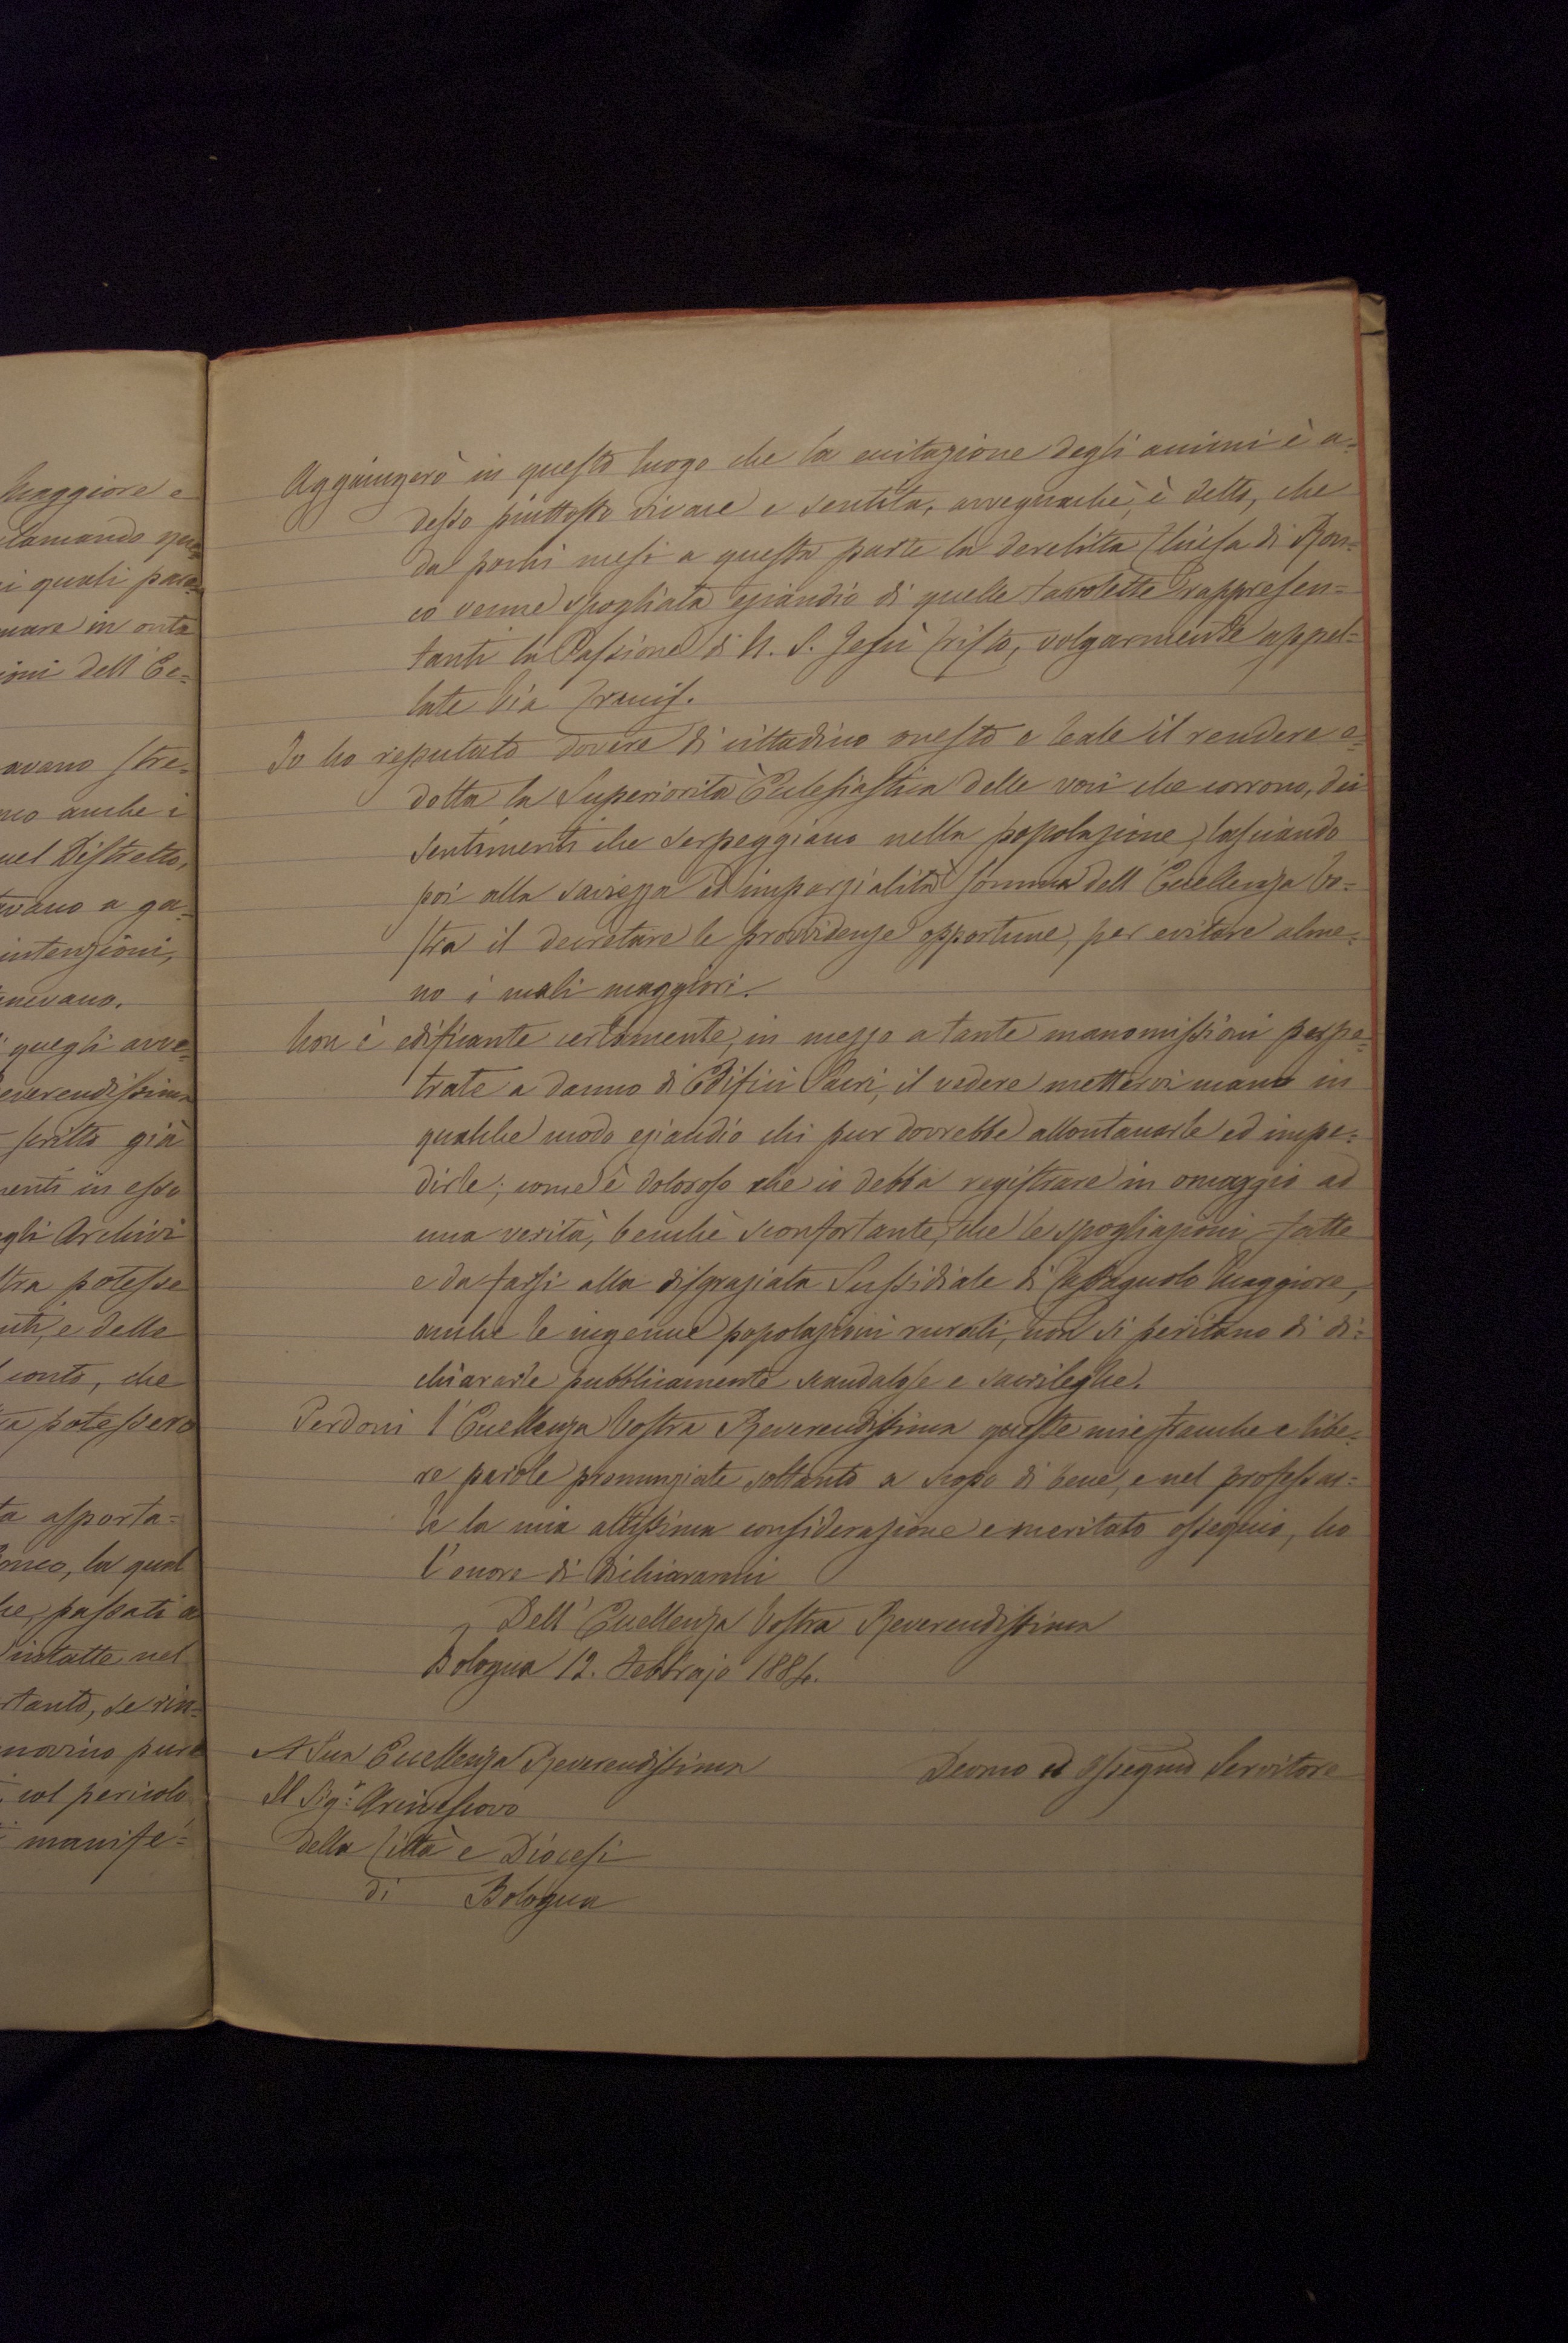 Maggiore e
clamando que
i quali para=
mare in onta
ioni dell'Ec=
avano stre=
no anche i
nel Distretto,
tevano a ga=
intenzioni,
nevano.
quegli avve=
everendissima
scritto già
menti in esso
gli Archivi
stra potesse
uti, e delle
conto, che
ta potessero
ta asporta=
Ronco, la qual
he, passati a
intatte nel
rtanto, se rin=
novino pure
col pericolo
manife=
Aggiungerò in questo luogo che la eccitazione degli animi è a=
desso piuttosto vivace e sentita, avvegnachè, è detto, che
da pochi mesi a questa parte la derelitta Chiesa di Ron=
co venne spogliata eziandio di quelle tavolette rappresen=
tanti la Passione di N. S. Gesù Cristo, volgarmente appel=
late Via Crucis.
Io ho reputato dovere di cittadino onesto e leale il rendere e=
dotta la Superiorità Ecclesiastica delle voci che corrono, dei
sentimenti che serpeggiano nella popolazione, lasciando
poi alla saviezza ed imparzialità somma dell'Eccellenza Vo=
stra il decretare le provvidenze opportune, per evitare alme=
no i mali maggiori.
Non è edificante certamente, in mezzo a tante manomissioni perpe=
trate a danno di Edifici Sacri, il vedere mettervi mano in
qualche modo eziandio chi pur dovrebbe allontanarle ed impe=
dirle; come è doloroso che io debba registrare in omaggio ad
una verità, benchè sconfortante, che le spogliazioni fatte
e da farsi alla disgraziata Sussidiale di Castagnolo Maggiore,
anche le ingenue popolazioni rurali, non si peritano di di=
chiararle pubblicamente scandalose e sacrileghe.
Perdoni l'Eccellenza Vostra Reverendissima queste mie franche e libe=
re parole pronunziate soltanto a scopo di bene, e nel professar=
le la mia altissima considerazione e meritato ossequio, ho
l'onore di dichiararmi
Dell'Eccellenza Vostra Reverendissima
Bologna 12. Febbrajo 1884.
A Sua Eccellenza Reverendissima
Devmo ed Ossequio Servitore
Il Sigr: Arcivescovo
della Città e Diocesi
di Bologna